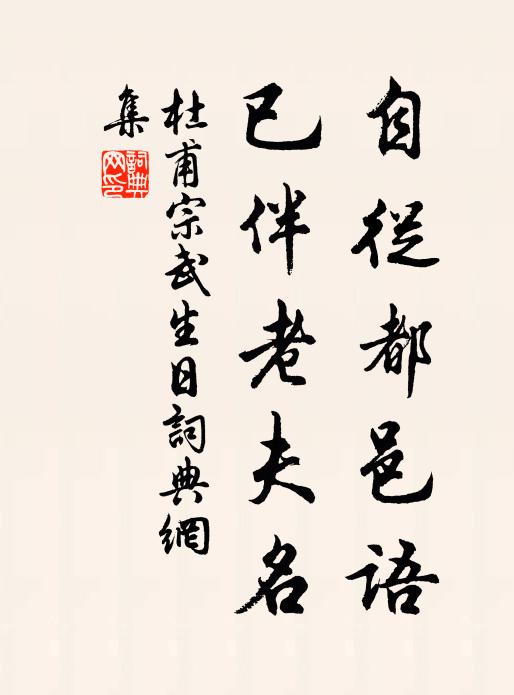 自從都邑語
已伴老夫名
杜甫宗武生日詞典網
集
詞典
网印